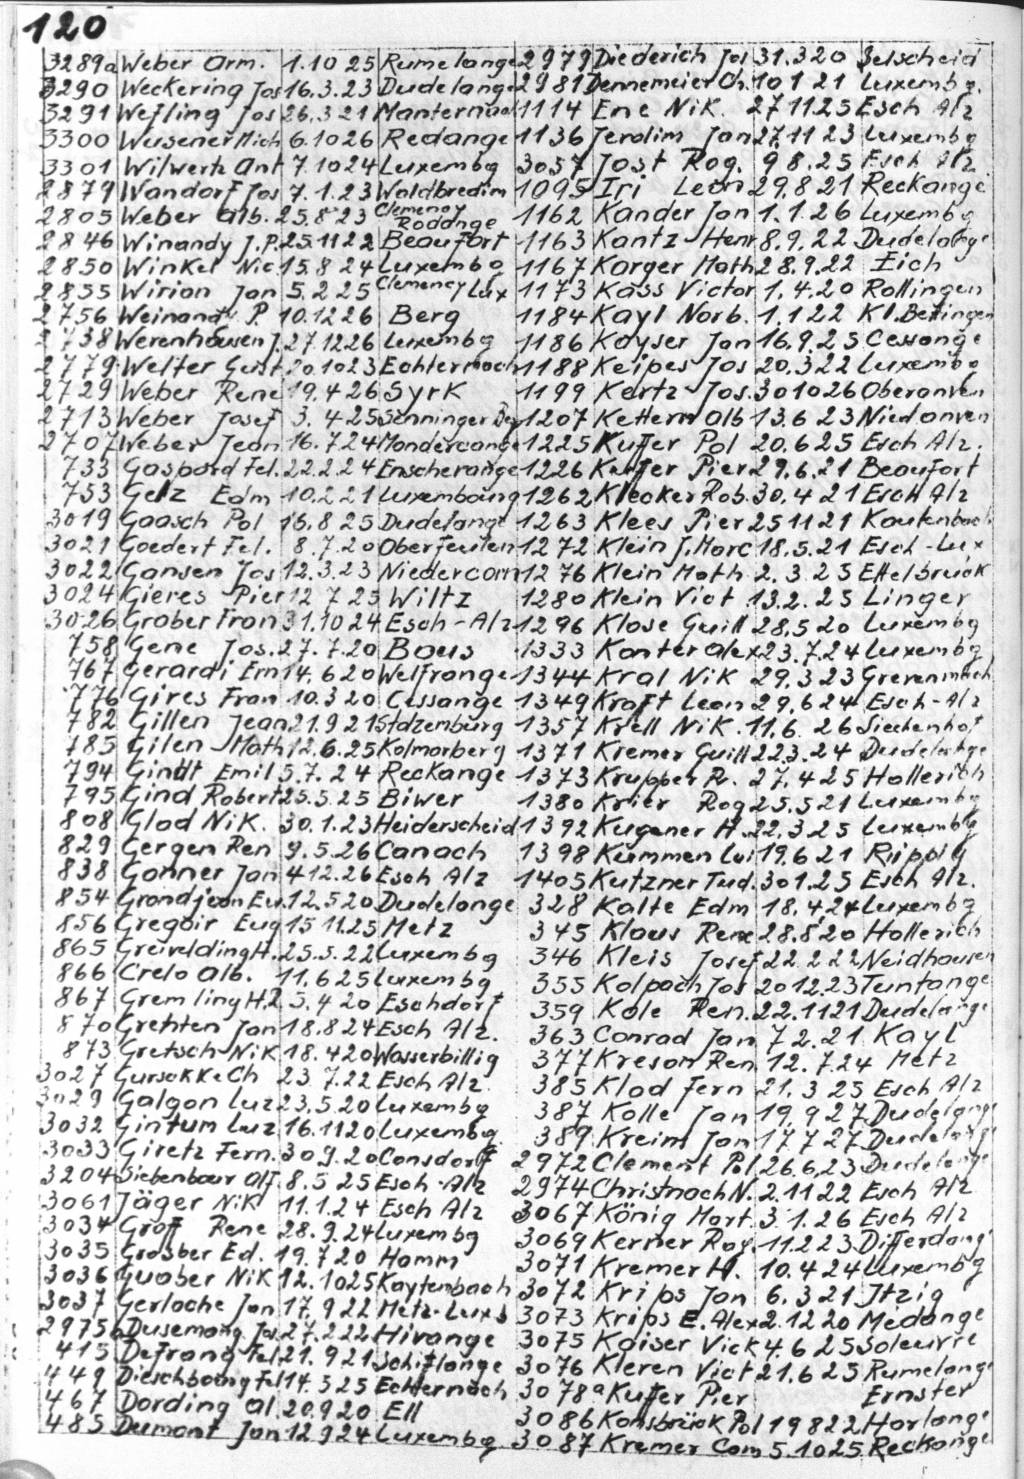 120
3289a Weber Arm. 1.10 25 Rumelange
3290 Weckering Jos 16.3.23 Dudelange
3291 Wefling Jos 26.3.21 Manternach
3300 Wiesener Mich 6.10 26 Redange
3301 Wilwertz Ant 7.10 24 Luxembg
2879 Wandorf Jos 7.1.23 Waldbredim
2805 Weber Alb. 25.8 23 Clemency Rodange
2846 Winandy J.P. 25.11 22 Beaufort
2850 Winkel Nic 15.8 24 Luxembg
2855 Wirion Jan 5.2 25 Clemency Lux
2756 Weinandy P. 10.12 26 Berg
2738 Werenhausen J. 27.12 26 Luxembg
2779 Welter Gust 20.10 23 Echternach
2729 Weber Rene 19.4 26 Syrk
2713 Weber Josef 3.4 25 Senninger Bg
2707 Weber Jean 16.7 24 Mondercange
733 Gaspard Fel. 22.2 24 Enscherange
753 Getz Edm 10.2 21 Luxembourg
3019 Gaasch Pol 15.8 25 Dudelange
3021 Goedert Fel. 8.7.20 Oberfeulen
3022 Gansen Jos 12.3.23 Niedercorn
3024 Gieres Pier 12 7 25 Wiltz
3026 Grober Fran 31.10 24 Esch-Alz
758 Gene Jos. 27.7.20 Bous
767 Gerardi Em 14.6 20 Welfrange
776 Gires Fran 10.3 20 Cessange
782 Gillen Jean 21.9 21 Stolzemburg
785 Gilen Math 12.6.25 Kolmarberg
794 Gindt Emil 5.7.24 Reckange
795 Gind Robert 25.5.25 Biwer
808 Glod NiK. 30.1.23 Heiderscheid
829 Gergen Ren 9.5.26 Canach
838 Gonner Jan 4 12.26 Esch Alz
854 Grandjean Eu. 12.5 20 Dudelange
856 Gregoir Eug 15 11.25 Metz
865 Greiveldinger H. 25.5.22 Luxembg
866 Crelo Alb. 11.6 25 Luxembg
867 Gremling H.R. 5.4 20 Eschdorf
870 Grethten Jan 18.8 24 Esch Alz.
873 Gretsch NiK 18.4 20 Wasserbillig
3027 Ch 23.7.22 Esch Alz
3029 Galgon Luz 23.5.20 Luxembg
3032 Gintum Luz 16.11 20 Luxembg
3033 Giretz Fern. 30 9.20 Consdorf
3204 Siebenbour Alf. 8.5 25 Esch-Alz
3061 Jäger NiK 11.1.24 Esch Alz
3034 Groff Rene 28.9.24 Luxembg
3035 Grosber Ed. 19.7 20 Hamm
3036 Guober NiK 12.10 25 Kaytenbach
3037 Gerloche Jan 17.9 22 Metz-Luxb
2975b Dusemang Jos 27.2.22 Hivange
415 Defrang Fel 21.9 21 Schiflange
449 Dieschbourg Fel 14.3 25 Echternach
467 Dording Al. 20.9 20 Ell
485 Dumont Jan 12.9 24 Luxembg
2979 Diederich Jos 31.3 20 Selscheid
2981 Dennemeier Ch. 10 1 21 Luxembg.
1114 Ene NiK. 27 11 25 Esch Alz
1136 Jerolim Jan 27.11 23 Luxembg
3057 Jost Rog. 9 8.25 Esch Alz
1095 Iri Leon 29.8 21 Reckange
1162 Kander Jan 1.1.26 Luxembg
1163 Kantz Henr 8.9.22 Dudelange
1167 Karger Math 28.9.22 Eich
1173 Kass Victor 1.4.20 Rollingen
1184 Kayl Norb. 1.1 22 Kl. Bettingen
1186 Kayser Jan 16.9.25 Cessange
1188 Keipes Jos 20.3.22 Luxembg
1199 Kertz Jos. 30 10 26 Oberanven
1207 Kettern Alb 13.6 23 Niedanven
1225 Kuffer Pol 20.6 25 Esch Alz.
1226 Keffer Pier 29.6.21 Beaufort
1262 Klecker Rob. 30.4 21 Esch Alz
1263 Klees Pier 25 11 21 Kautenbach
1272 Klein J.Marc 18.5.21 Esch-Lux
1276 Klein Math 2.3.25 Ettelbrück
1280 Klein Vict 13.2.25 Linger
1296 Klose Guill 28.5 20 Luxembg
1333 Konter Alex 23.7.24 Luxembg
1344 Kral NiK 29.3 23 Grevenmach
1349 Kraft Leon 29.6 24 Esch-Alz
1357 Krell NiK. 11.6 26 Siechenhof
1371 Kremer Guill 22 3.24 Dudelange
1373 Krupper Pr. 27.4 25 Hollerich
1380 Krier Rog 25.5 21 Luxembg
1392 Kugener H. 22.3 25 Luxembg
1398 Kummen Lui 19.6 21 Riipplg
1405 Kutzner Tud. 30 1.25 Esch Alz.
328 Kalte Edm 18.4.24 Luxembg
345 Klaus Rene 28.8 20 Hollerich
346 Kleis Josef 22.2 22 Neidhausen
355 Kolpach Jos 20 12.23 Tuntange
359 Kole Ren. 22.11 21 Dudelange
363 Conrad Jan 7 2.21 Kayl
377 Kreson Ren 12.7.24 Metz
385 Klod Fern 21.3 25 Esch Alz
387 Kolle Jan 19.9 27 Dudelange
389 Kreim Jan 17 7 27 Dudelange
2972 Clement Pol 26.6.23 Dudelange
2974 Christnach N. 2.11 22 Esch Alz
3067 König Mart 3.1.26 Esch Alz
3069 Kerner Ray. 11.2 23 Differdang
3071 Kremer H. 10.4 24 Luxembg
3072 Krips Jan 6.3 21 Jtzig
3073 Krips E. Alex 2.12 20 Medange
3075 Kaiser Vick 4.6 25 Soleuvre
3076 Kleren Vict 21.6 25 Rumelange
3078a Kuffer Pier Ernster
3086 Konsbrück Pol 19 8 22 Harlange
3087 Kremer Com 5.10 25 Reckange